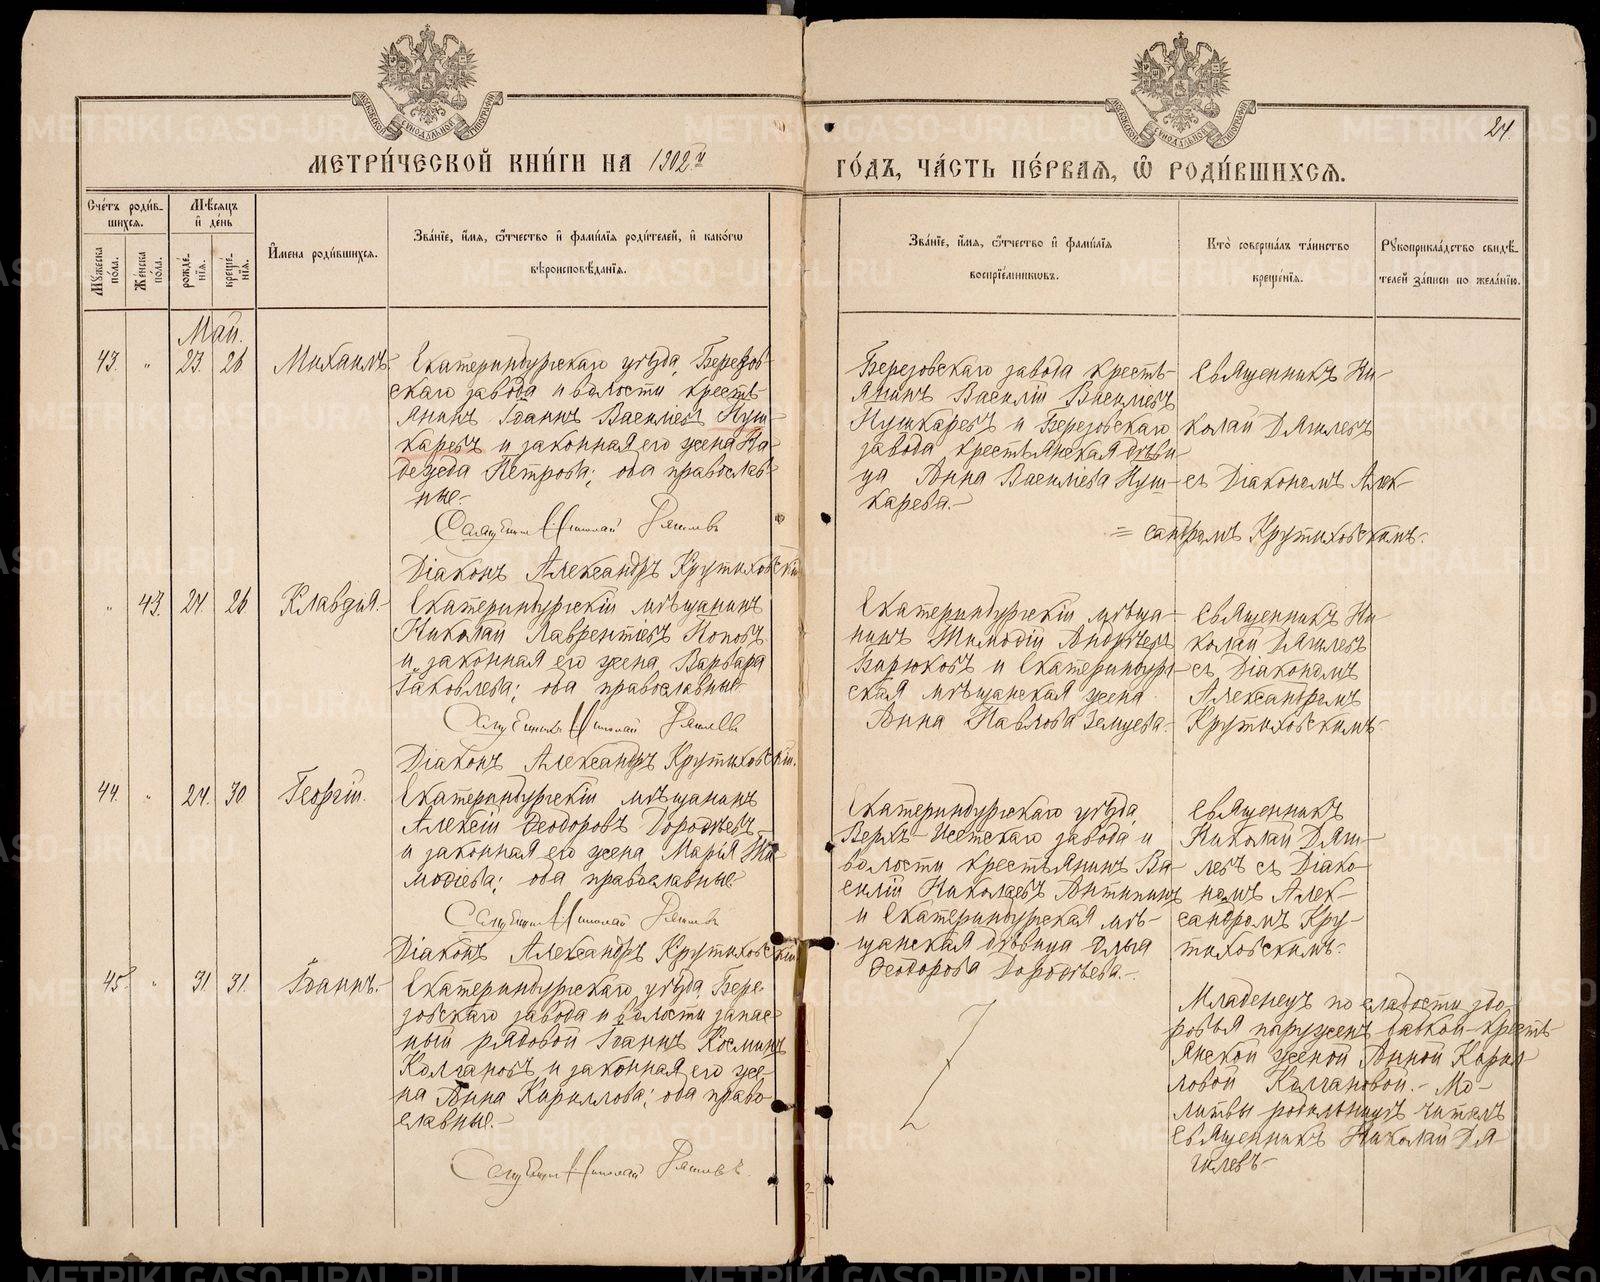 24
МЕТРИ́ЧЕСКОЙ КНИ́ГИ НА 1902й
ГО́ДЪ, ЧА́СТЬ ПЕ́РВАЯ, Ѡ҆ РОДИ́ВШИХСЯ.
Сче́тъ роди́в-
шихся.
Мꙋжеска по́ла.
Же́нска по́ла.
Мѣ́сяцъ
и҆ де́нь
рожде́-
нїя.
креще́-
нїя.
И҆мена роди́вшихся.
Зва́нїе, и҆́мя, ѻ҆́тчество и҆ фами́лїѧ роди́телей, и҆ како́гѡ
вѣроисповѣ́данїя.
Зва́нїе, и҆́мя, ѻ҆́тчество и҆ фами́лїя
воспрїе́мникѡвъ.
Кто̀ соверша́лъ та́инство
креще́нїя.
Рꙋкоприкла́дство свидѣ́-
телей за́писи по жела́нїю.
Май.
43. " 23. 26 Михаилъ.
Екатеринбургскаго уѣзда, Березов-
скаго завода и волости кресть-
янинъ Іоаннъ Васильевъ Пуш-
каревъ и законная его жена На-
дежда Петрова; оба православ-
ные.-
Священникъ Николай Дягилевъ
Діаконъ Александръ Крутиховскій
Березовскаго завода кресть-
янинъ Василій Васильевъ
Пушкаревъ и Березовскаго
завода крестьянская дѣви-
ца Анна Васильева Пуш-
карева.-
Священникъ Ни-
колай Дягилевъ
съ Діакономъ Алек-
= сандромъ Крутиховскимъ.-
" 43. 24 26 Клавдія.-
Екатеринбургскій мѣщанинъ
Николай Лаврентіевъ Поповъ
и законная его жена Варвара
Іаковлева; оба православные
Священникъ Николай Дягилевъ
Діаконъ Александръ Крутиховскій.
Екатеринбургскій мѣща-
нинъ Тимоѳій Андреевъ
Бирюковъ и Екатеринбург-
ская мѣщанская жена
Анна Павлова
Священникъ Ни-
колай Дягилевъ
съ Діакономъ
Александромъ
Крутиховскимъ-
44. " 24. 30 Георгій.
Екатеринбургскій мѣщанинъ
Алексій Ѳеодоровъ Дороѳѣевъ
и законная его жена Марія Ти-
моѳіева; оба православные
Священникъ Николай Дягилевъ
Діаконъ Александръ Крутиховскій
Екатеринбургскаго уѣзда,
Верхъ-Исетскаго завода и
волости крестьянинъ Ва-
силій Николаевъ Антипинъ
и Екатеринбургская мѣ-
щанская дѣвица Ольга
Ѳеодорова Дороѳѣева.-
Священникъ
Николай Дяги-
левъ съ Діако-
номъ Алек-
сандромъ Кру-
тиховскимъ.
45. " 31 31. Іоаннъ.-
Екатеринбургскаго уѣзда, Бере-
зовскаго завода и волости запас-
ный рядовой Іоаннъ Косминъ
Колгановъ и законная его же-
на Анна Кириллова; оба право-
славные.-
Священникъ Николай Дягилевъ.
Младенецъ по слабости здо-
ровья погруженъ бабкой крестъ-
янской женой Анной Кирил-
ловой Колгановой.- Мо-
литвы родильницѣ читалъ
Священникъ Николай Дя-
гилевъ-